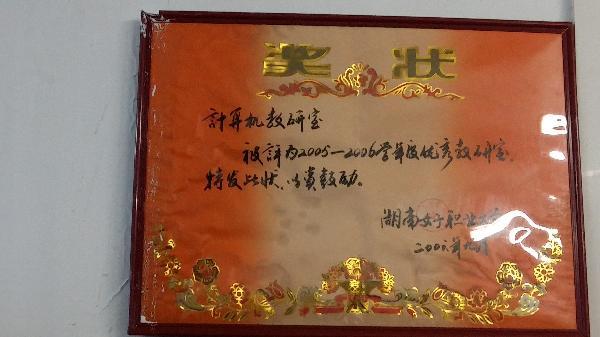 奖状
計算机教研室
被評为2005—2006学年度优秀教研室,
特发此状,以資鼓励。
湖南女子职业大
200 年 月